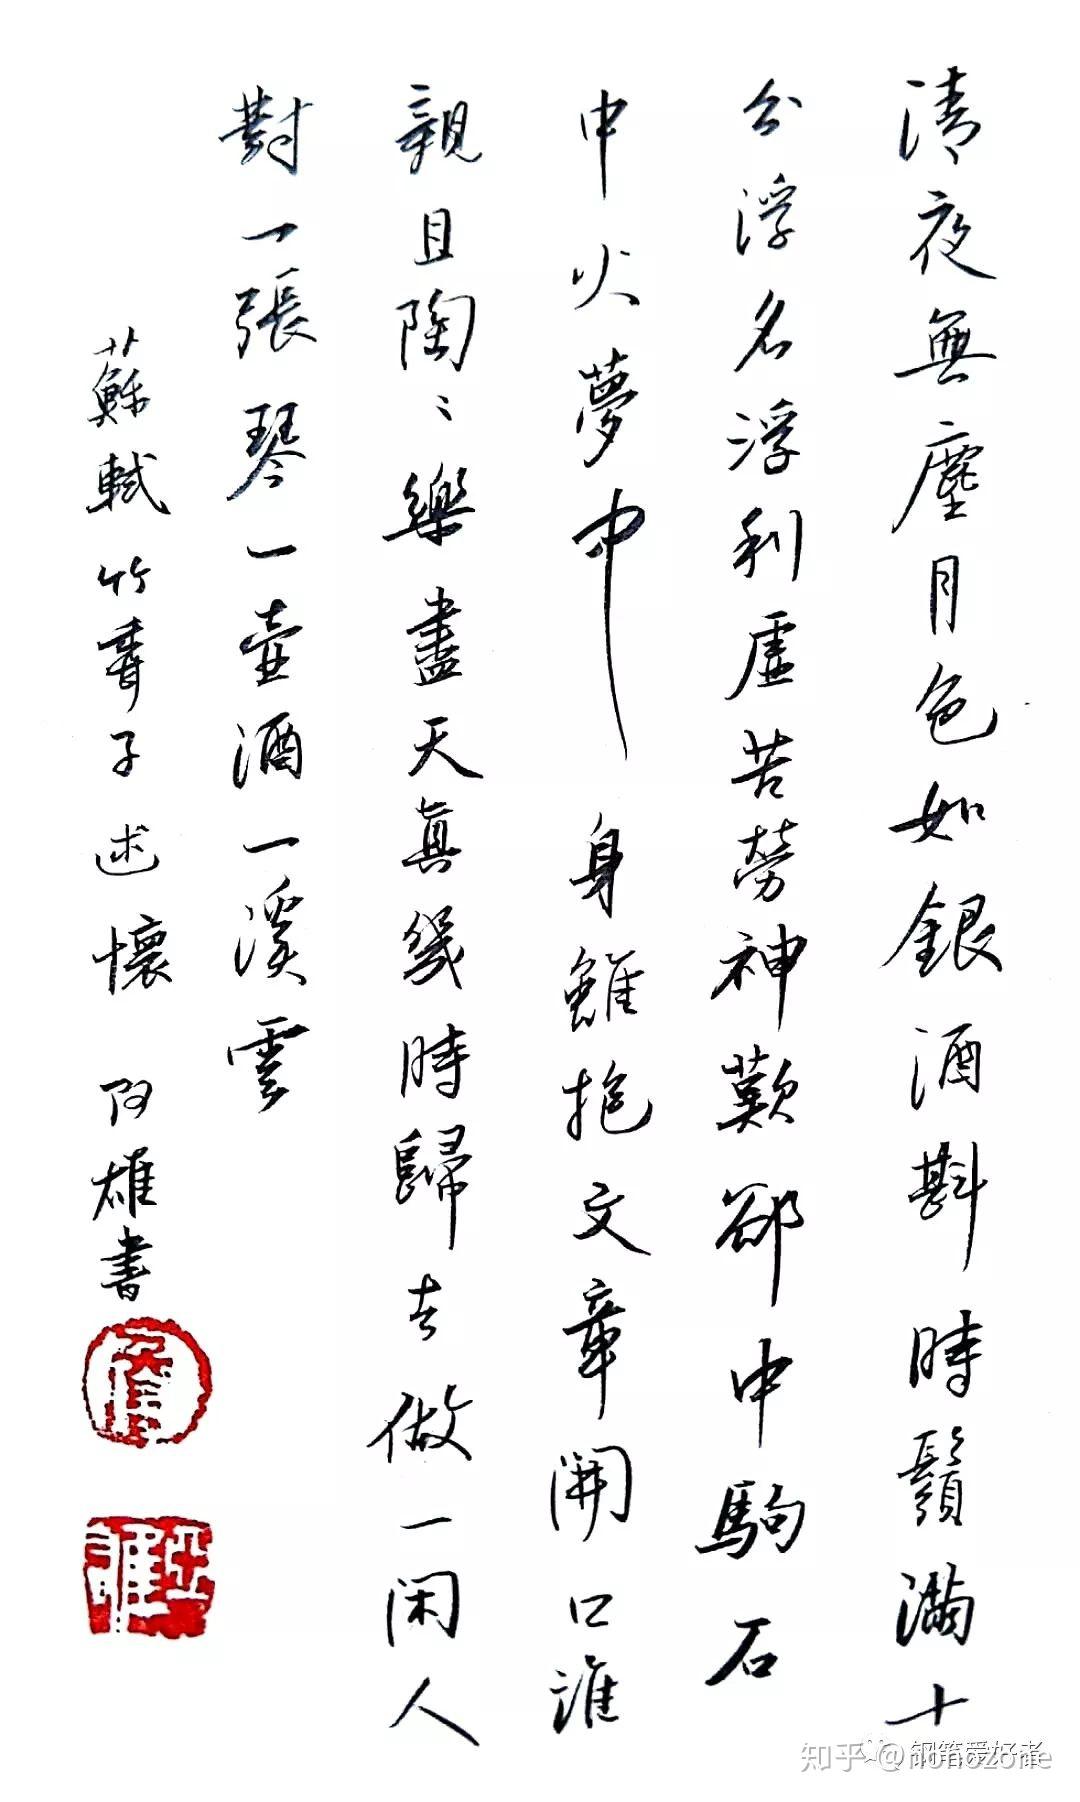 清夜無塵月色如銀酒斟時鬚滿十
分浮名浮利虛苦勞神歎郤中駒石
中火夢中身雖抱文章開口誰
親且陶〻樂盡天真幾時歸去做一閑人
對一張琴一壺酒一溪雲
蘇軾行香子述懷 阿雄書
钢笔爱好者
知乎 @nonozone